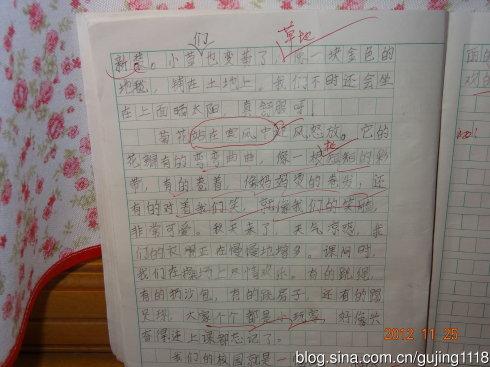 们
草地
新装。小草也变黄了,像一块金色的
地毯,铺在土地上。我们不时还会坐
在上面晒太阳,真舒服呀!
菊花站在寒风中迎风怒放。它的
花瓣有的弯弯曲曲,像一根根的彩
带,有的卷着,像妈妈烫的卷发,还
有的对着我们笑,就像我们的笑脸
非常可爱。秋天来了,天气凉爽,我
们的大明正在慢慢地增多。课间时,
我们在操场上尽情欢乐。有的跳绳,
有的扔沙包,有的跳房子,还有的踢
足球,大家个个都是小玩家,好像兴
奋得连上课都忘记了。
我们的校园就是一
2012 11 25
blog.sina.com.cn/gujing1118